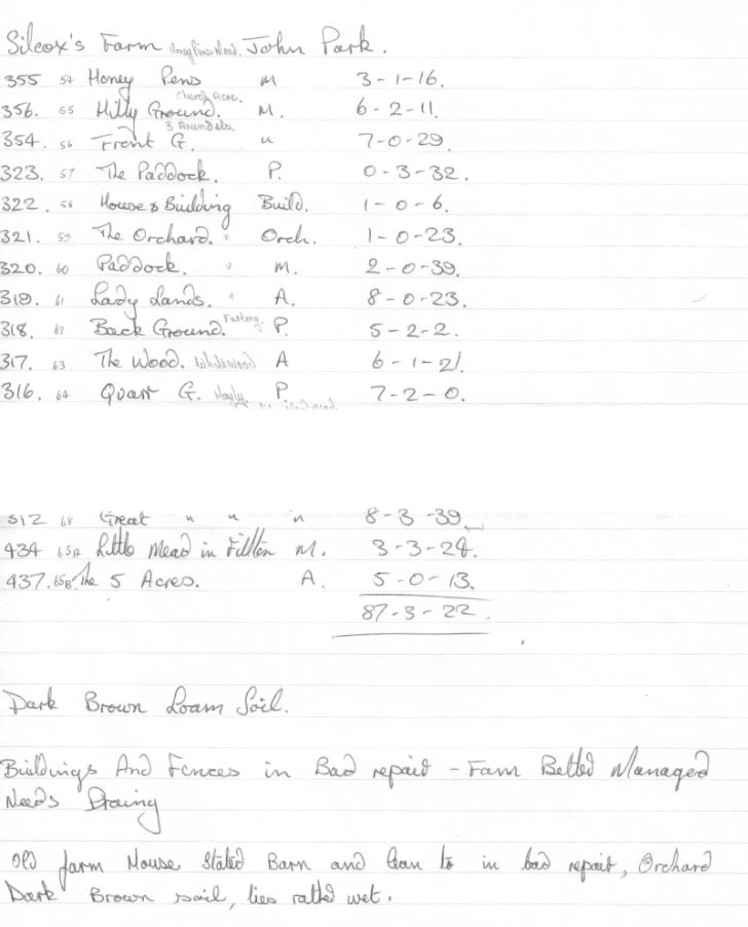 Silcox's Farm John Park.
355 54 Honey Pens M 3-1-16.
Church Acre.
356. 55 Hilly Ground. M. 6-2-11.
3 Arundels.
354. 56 Front G. " 7-0-29.
323. 57 The Paddock. P. 0-3-32.
322. 58 House & Building Build. 1-0-6.
321. 59 The Orchard. " Orch. 1-0-23.
320. 60 Paddock. " M. 2-0-39.
319. 61 Lady Lands. " A. 8-0-23.
318. 62 Back Ground. P. 5-2-2.
317. 63 The Wood. A 6-1-21.
316. 64 Quarr G. P. 7-2-0.
512 68 Great " " " 8-3-39.
434 65A Little Mead in Fillton M. 3-3-24.
437. 65B The 5 Acres. A. 5-0-13.
87-3-22.
Dark Brown Loam Soil.
Buildings And Fences in Bad repair - Farm Better Managed
Needs Draing
Old farm House Stated Barn and lean to in bad repair, Orchard
Dark Brown soil, lies rather wet.